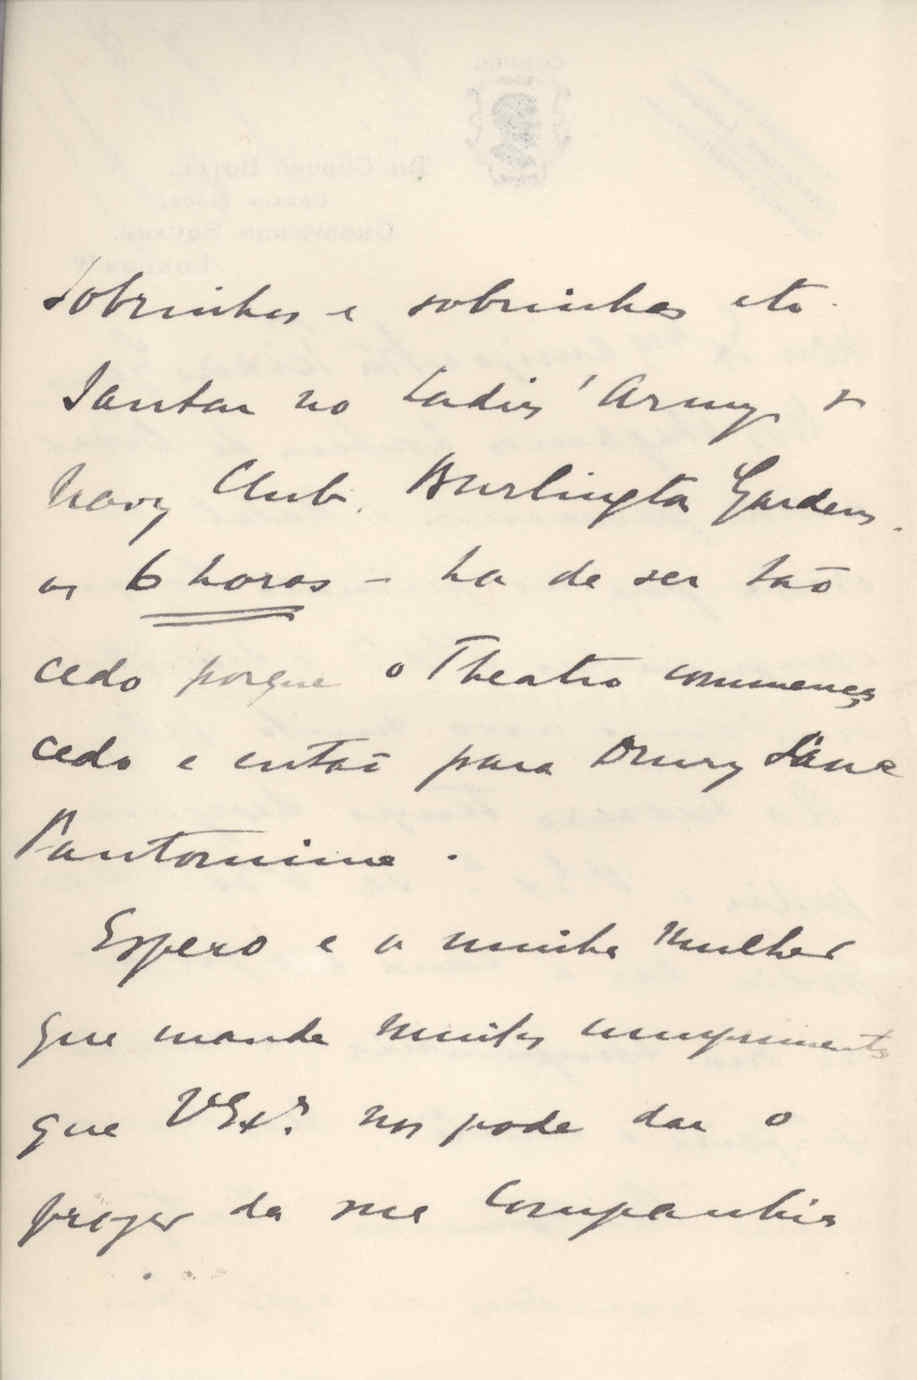 Sobrinhos e sobrinhas etc.
Jantar no Ladies' Army &
Navy Club. Burlington Gardens.
as 6 horas – ha de ser tão
cedo porque o Theatro commença
cedo e então para Drury Lane
Pantomime.
Espero e a minha mulher
que manda muitos cumprimentos
que VExa. nos pode dar o
prazer da sua Companhia